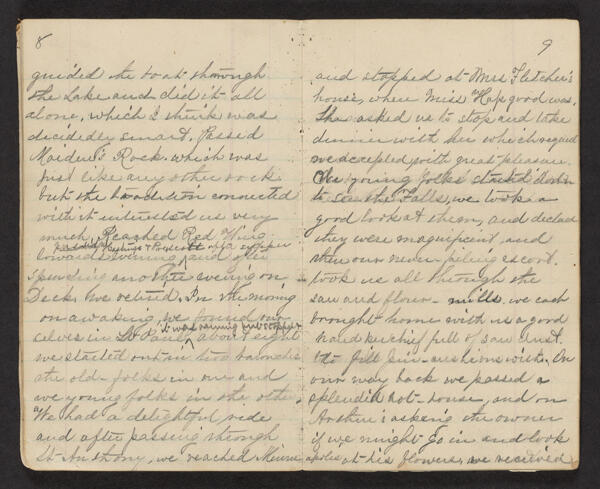 8
guided the boat through
the Lake and did it all
alone, which I think was
decidedly smart. Passed
Maiden's Rock. which was
just like any other rock
but the tradition connected
with it interested us very
much. Reached Red Wing
towards evening, and after
spending another evening on
Deck. We retired. In the morning
on awaking we found our
selves in St Paul, about eight
it was raining but stopped &
we started out in two barouches
the old folks in one and
we young folks in the other.
We had a delightful ride
and after passing through
St Anthony, we reached Minneapolis
9
and stopped at Mrs Fletcher's
house, where Miss Hapgood was.
She asked us to stop and take
dinner with her which request
we accepted with great pleasure.
We young folks started down
to see the Falls, we took a
good look at them, and declared
they were magnificent, and
then our never-failing escort.
took us all through the
saw and flour-mills, we each
brought home with us a good
handkerchief full of saw dust.
to fill pin-cushions with. On
our way back we passed a
splendid hot-house, and on
Arthur's asking the owner
if we might go in and look
at his flowers, we received